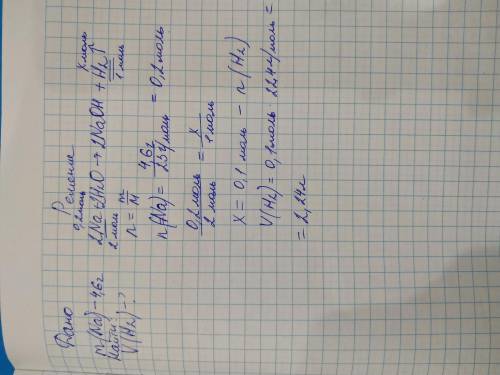 Дано
m(Na) - 4,6г
Найти:
V(H2) - ?
Решение
0,2 моль
x моль
2Na + 2H2O → 2NaOH + H2↑
2 моль
1 моль
n = m/M
n(Na) = 4,6г / 23г/моль = 0,2 моль
0,2 моль / 2 моль = x / 1 моль
x = 0,1 моль - n(H2)
V(H2) = 0,1 моль · 22,4л/моль =
= 2,24л